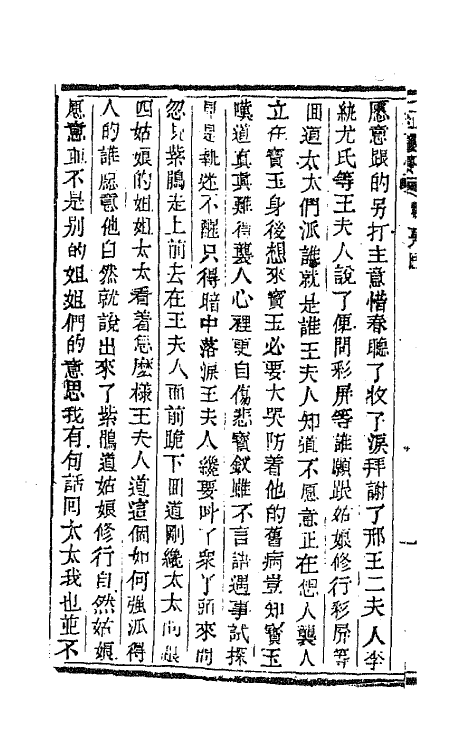 愿意跟的另打主意惜春聽了收了淚拜謝了邢王二夫人李
紈尤氏等王夫人說了便問彩屏等誰願跟姑娘修行彩屏等
囬道太太們派誰就是誰王夫人知道不愿意正在想人襲人
立在寶玉身後想來寶玉必要大哭防着他的舊病豈知寶玉
嘆道真真難得襲人心裡更自傷悲寶釵雖不言語遇事試探
見是執迷不醒只得暗中落淚王夫人纔要叫了衆丫頭來問
忽見紫鵑走上前去在王夫人面前跪下囬道剛纔太太問跟
四姑娘的姐姐太太看着怎麽樣王夫人道這個如何強派得
人的誰愿意他自然就說出來了紫鵑道姑娘修行自然姑娘
愿意並不是别的姐姐們的意思我有句話囬太太我也並不